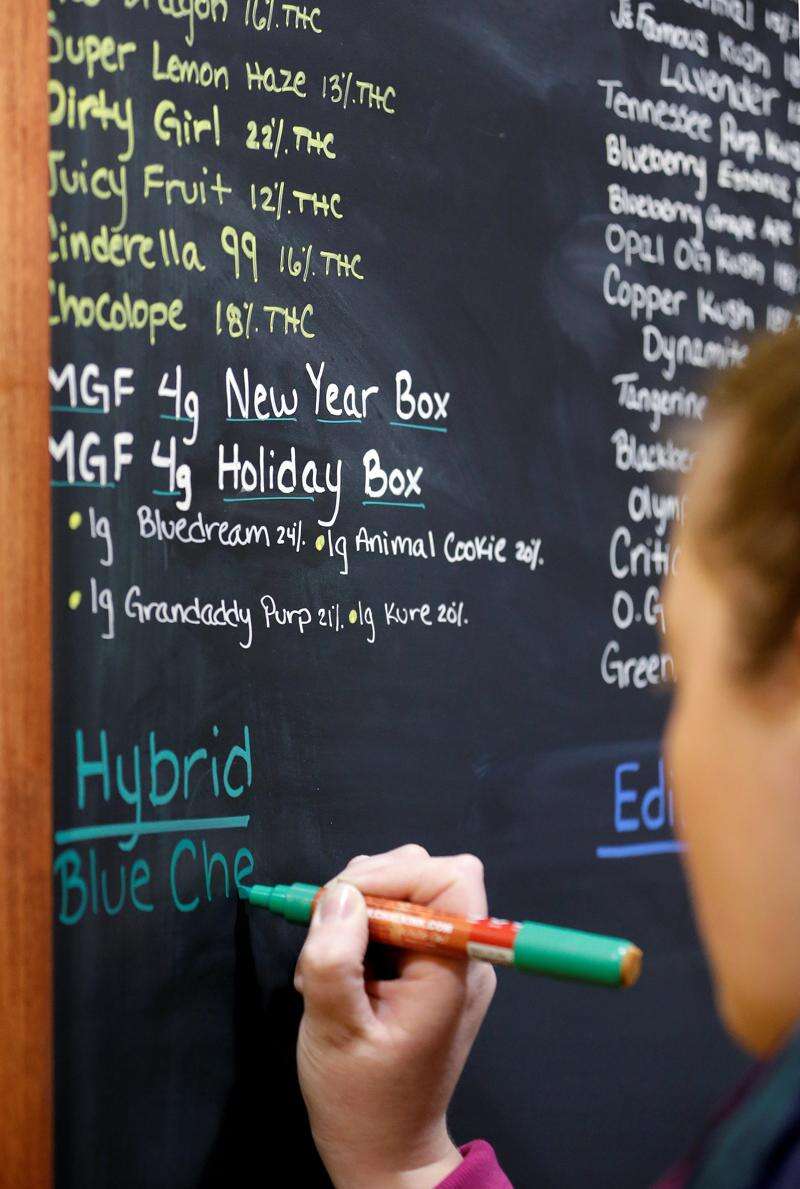 Dragon 16% THC
Super Lemon Haze 13% THC
Dirty Girl 22% THC
Juicy Fruit 12% THC
Cinderella 99 16% THC
Chocolope 18% THC
MGF 4g New Year Box
MGF 4g Holiday Box
• 1g Bluedream 24% • 1g Animal Cookie 20%
• 1g Grandaddy Purp 21% • 1g Kure 20%
Hybrid
Blue Che
J's Famous Kush
Lavender
Tennessee Purp Kush
Blueberry Essence
Blueberry Grape Ape
Opal OG Kush 18%
Copper Kush 18%
Dynamite
Tangerine
Blackbe
Olym
Critic
O.G
Green
Edi